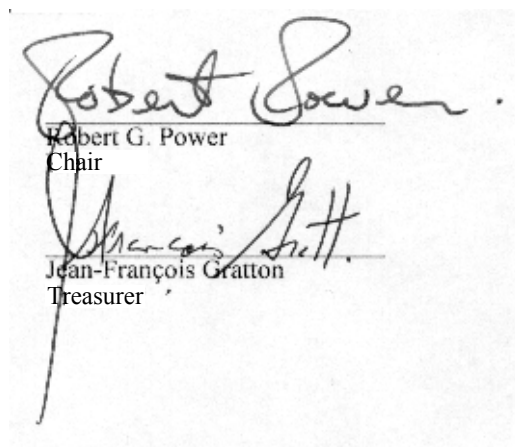 Robert Power.
Robert G. Power
Chair
J François Gratt.
Jean-François Gratton
Treasurer